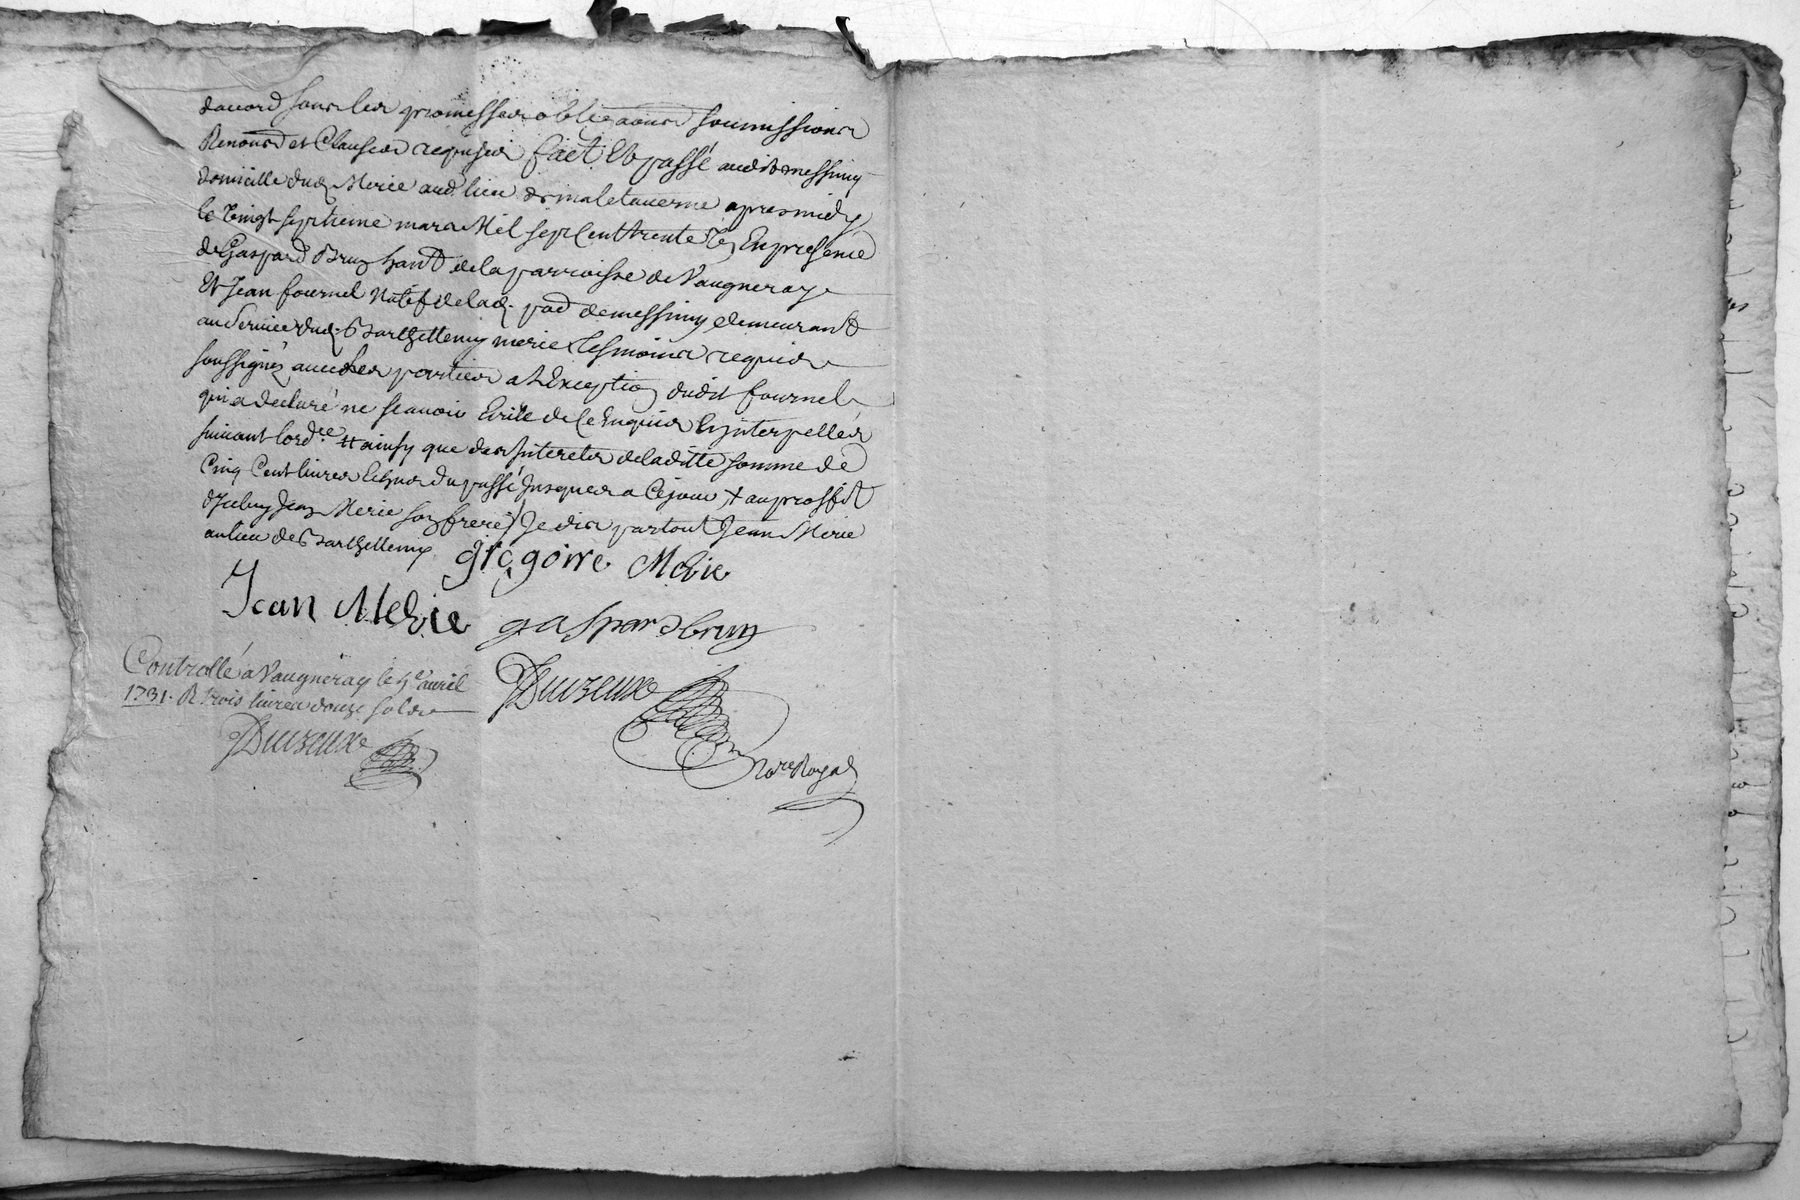 daccord sous les promesses obligaons soumissions
Renond et Clauses requises fait Et passé audit messimy
domicille dud. Merie aud. lieu de maletaverne apres midy
le vingt septieme mars Mil sept Cent trente Un En presence
de Gaspard Brun hant de la parroisse de Vaugneray
Et Jean fournel Natif de lad. pad de messimy demeurant
au service dud. Barthellemy merie tesmoins requis
soussignez avec les parties a L'Exception dudit fournel
qui a declaré ne scavoir Ecrire de ce Enquis Et interpellés
suivant lordce # ainsy que des Interetes de laditte somme de
Cinq Cent livres Echus du passé Jusques a Ce jour, + au proffit
d'Icluy Jean Merie son frere / Je dis partout Jean Merie
au lieu de Barthellemy
gregoire Merie
Jean Merie
gaspard brun
Duvzeuxe
Nore Royal
Controllé a Vaugneray le 5e avril
1731. R trois livres douze sols
Duvzeuxe